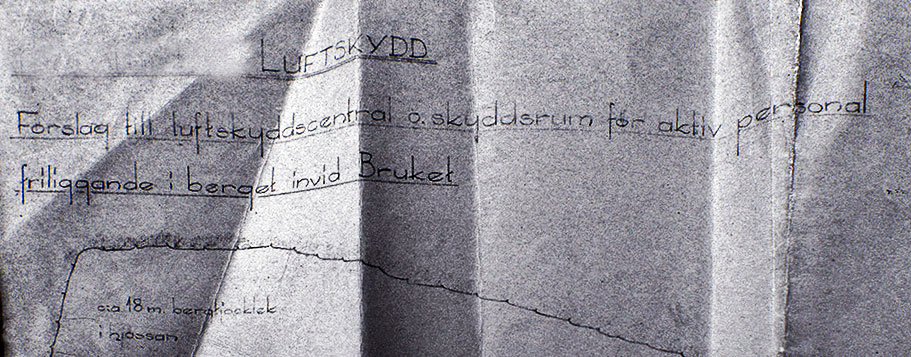 LUFTSKYDD
Förslag till luftskyddscentral o. skyddsrum för aktiv personal
friliggande i berget invid Bruket
c:a 18 m. bergtjocklek
i hjässan